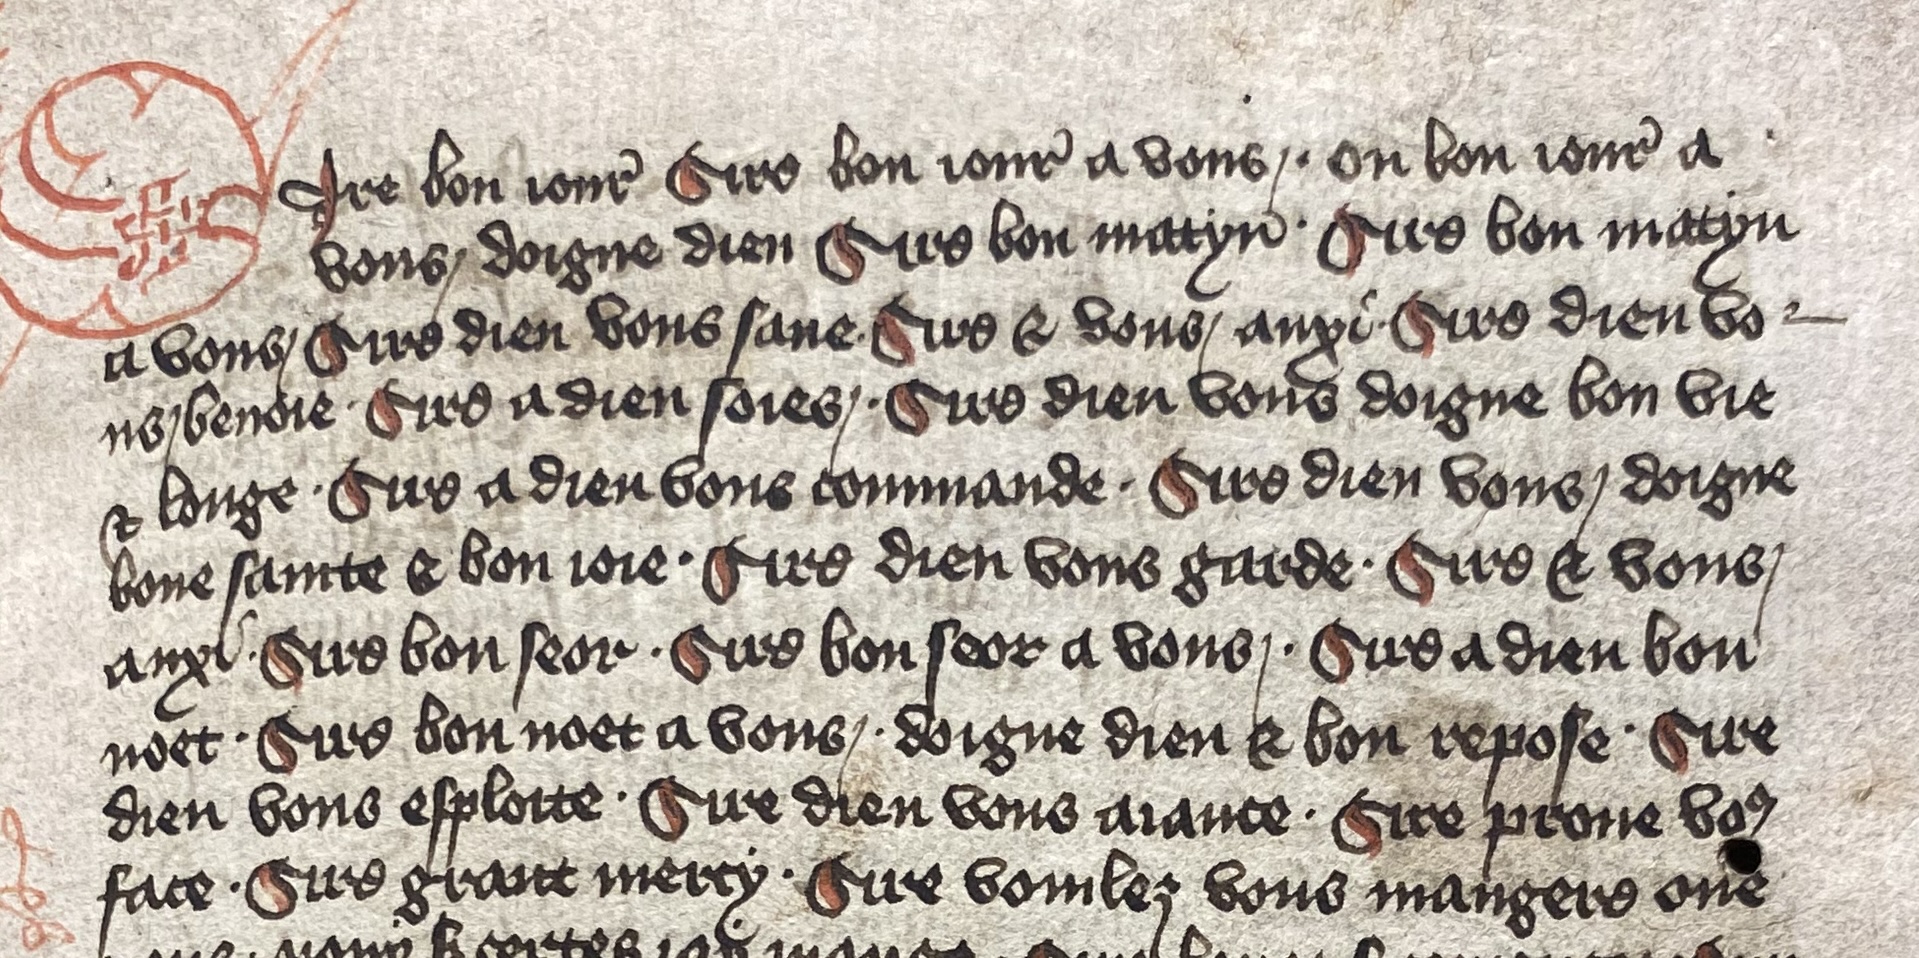 Sire bon iour Sire bon iour a vous / . ou bon iour a
vous / doigne dieu Sire bon matyn . Sire bon matyn
a vous / Sire dieu vous saue . Sire & vous / auxi . Sire dieu vo
us / benoie . Sire a dieu soies / . Sire dieu vous doigne bon vie
& longe . Sire a dieu vous commande . Sire dieu vous / doigne
bone saincte & bon ioie . Sire dieu vous garde . Sire & vous /
auxi . Sire bon seor . Sire bon seor a vous / . Sire a dieu bon
noet . Sire bon noet a vous / . doigne dieu & bon repose . Sire
dieu vous esploite . Sire dieu vous auance . Sire proue vo⁹
face . Sire grant mercy . Sire vouulez vous mangere oue